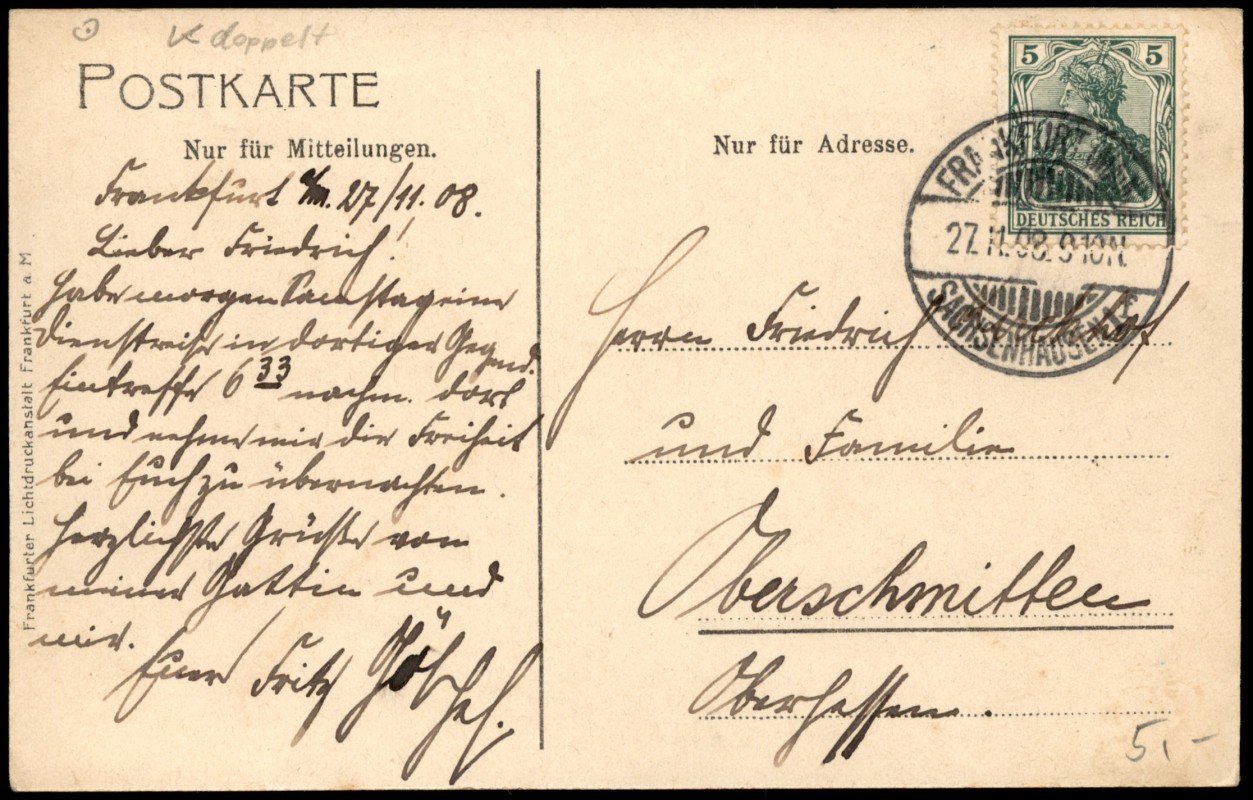 doppelt
POSTKARTE
Nur für Mitteilungen.
Frankfurt a/M. 27/11. 08.
Lieber Friedrich!
Habe morgen Samstag eine
Dienstreise in dortiger Gegend.
Eintreffe 6 33 nachm. dort
und nehme mir die Freiheit
bei Euch zu übernachten.
Herzlichste Grüsse von
meiner Gattin und
mir.
Euer Fritz
Frankfurter Lichtdruckanstalt Frankfurt a. M
Nur für Adresse.
5 5
DEUTSCHES REICH
FRANKFURT (MAIN)
27.11.08. 9-10N.
SACHSENHAUSEN
Herrn Friedrich
und Familie
Oberschmitten
Oberhessen.
5,-